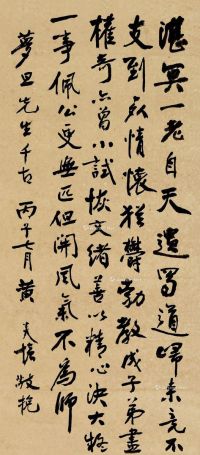 湛冥一老自天遺蜀道歸來竟不
支到死情懷猶鬱勃教成子弟盡
權奇亦曾小試恢文緒善以精心決大疑
一事佩公更無匹但開風氣不為師
夢旦先生千古 丙子七月黃炎培敬挽